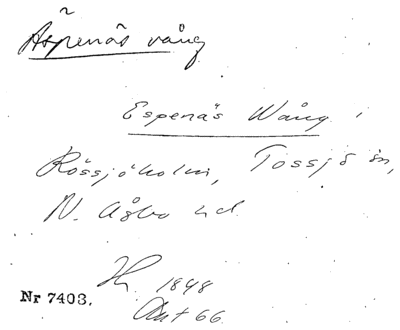 Äspenäs vång
Espenäs Wång i
Rössjöholm, Tossjö sn,
N. Åsbo hd.
1848
Akt 66
Nr 7403.